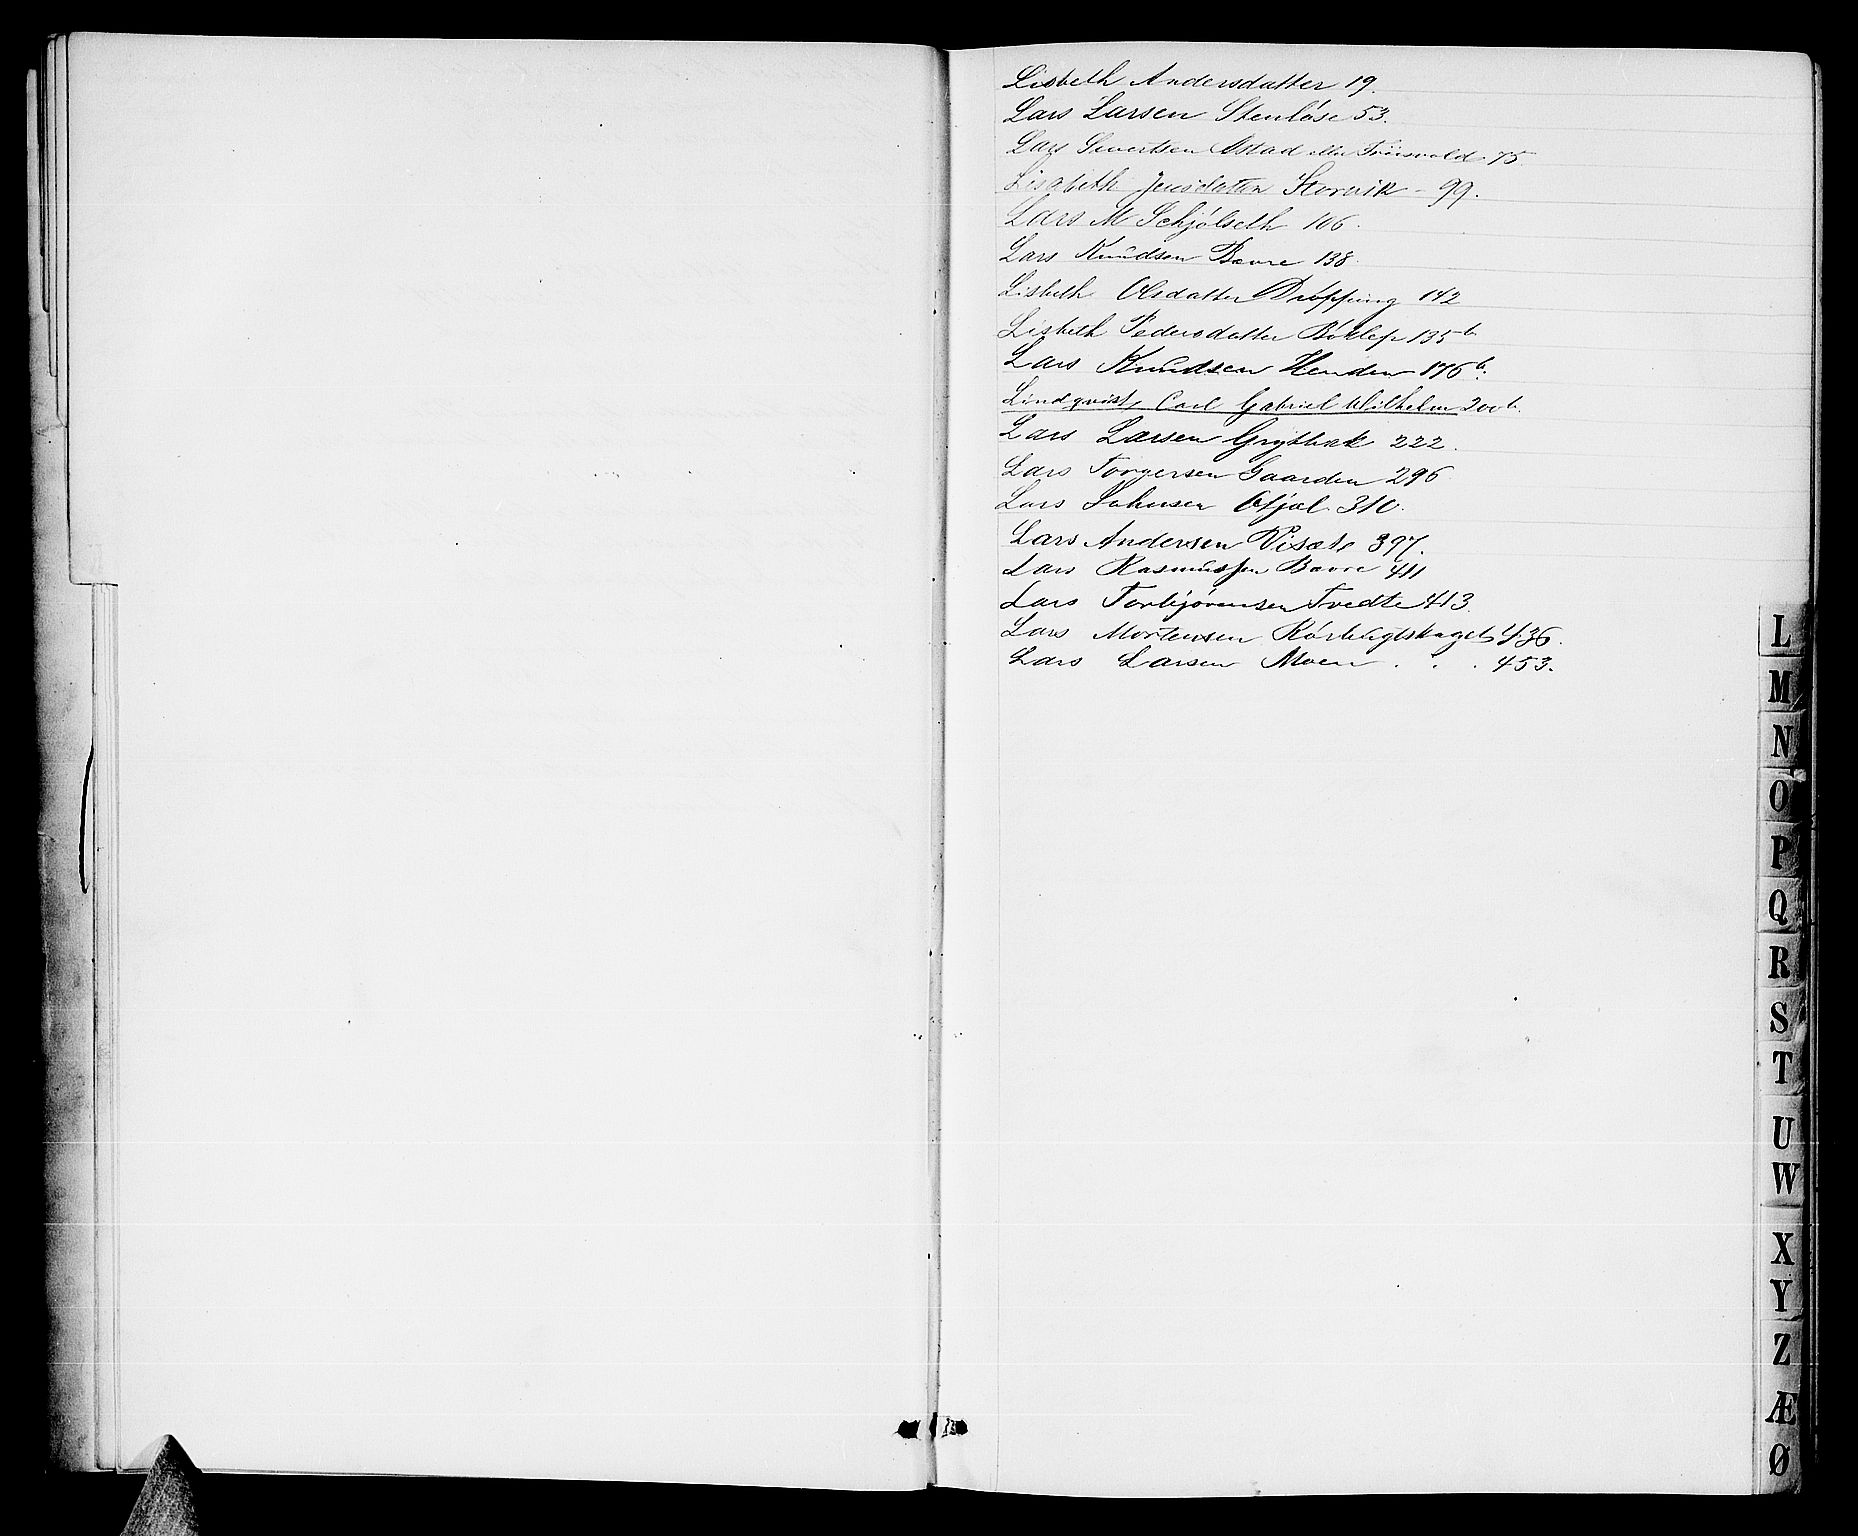 Lisbeth Andersdatter 19.
Lars Larsen Stenløse 53.
Lars Sivertsen Astad eller 75.
Lisabeth Jensdatter Storvik - 99.
Lars M Schjølseth 106.
Lars Knudsen Bævre 138.
Lisbeth Olsdatter Drøpping 142
Lisbeth Pedersdatter Bøklep 135b
Lars Knudsen Henden 176b.
Lindqvist, Carl Gabriel Wilhelm 200b.
Lars Larsen Grytbæk 222.
Lars Torgersen Gaarden 296
Lars Johnsen 310.
Lars Andersen Visæt 397.
Lars Rasmussen Bævre 411
Lars Torbjørnsen Tvedte 413.
Lars Mortensen 436.
Lars Larsen Moen . . . 453.
L
M
N
O
P
Q
R
S
T
U
W
X
Y
Z
Æ
Ø